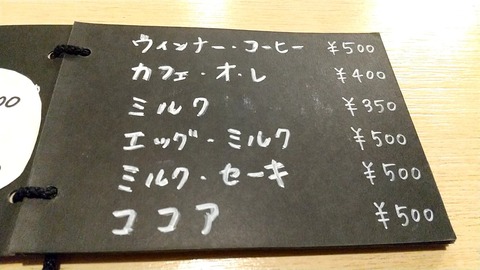 ウィンナー・コーヒー ¥500
カフェ・オ・レ ¥400
ミルク ¥350
エッグ・ミルク ¥500
ミルク・セーキ ¥500
ココア ¥500